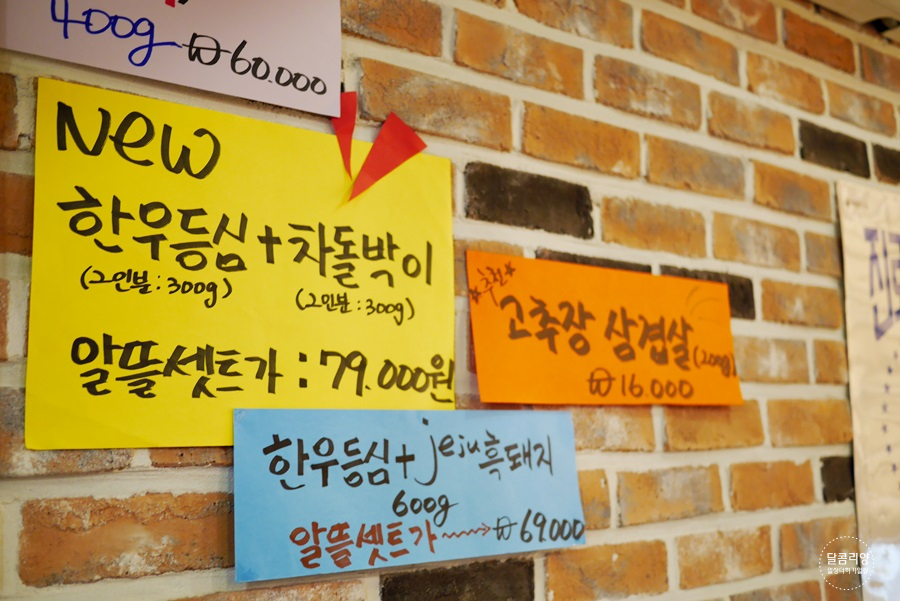 400g ₩60.000
New
한우등심+차돌박이
(2인분:300g) (2인분:300g)
알뜰셋트가:79.000원
추천
고추장 삼겹살(200g)
₩16.000
한우등심+jeju흑돼지
600g
알뜰셋트가 ₩69.000
달콤리영